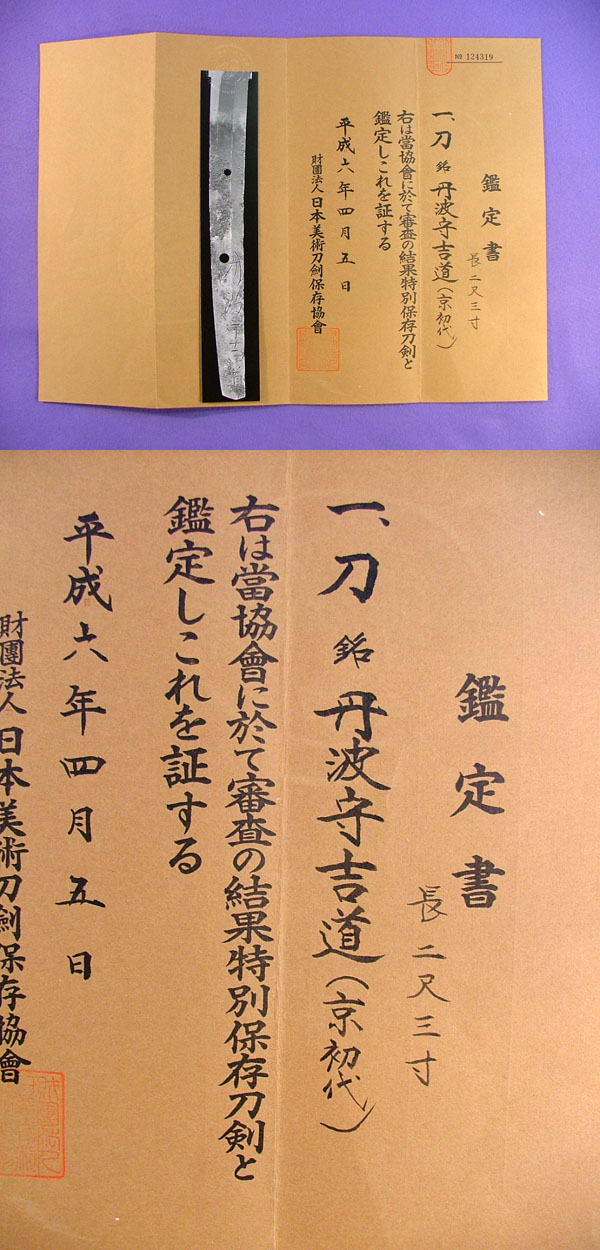 № 124319
鑑定書
長二尺三寸
一、刀 銘 丹波守吉道(京初代)
右は當協會に於て審査の結果特別保存刀剣と
鑑定しこれを証する
平成六年四月五日
財團法人日本美術刀剣保存協會
鑑定書
長二尺三寸
一、刀 銘 丹波守吉道(京初代)
右は當協會に於て審査の結果特別保存刀剣と
鑑定しこれを証する
平成六年四月五日
財團法人日本美術刀剣保存協會